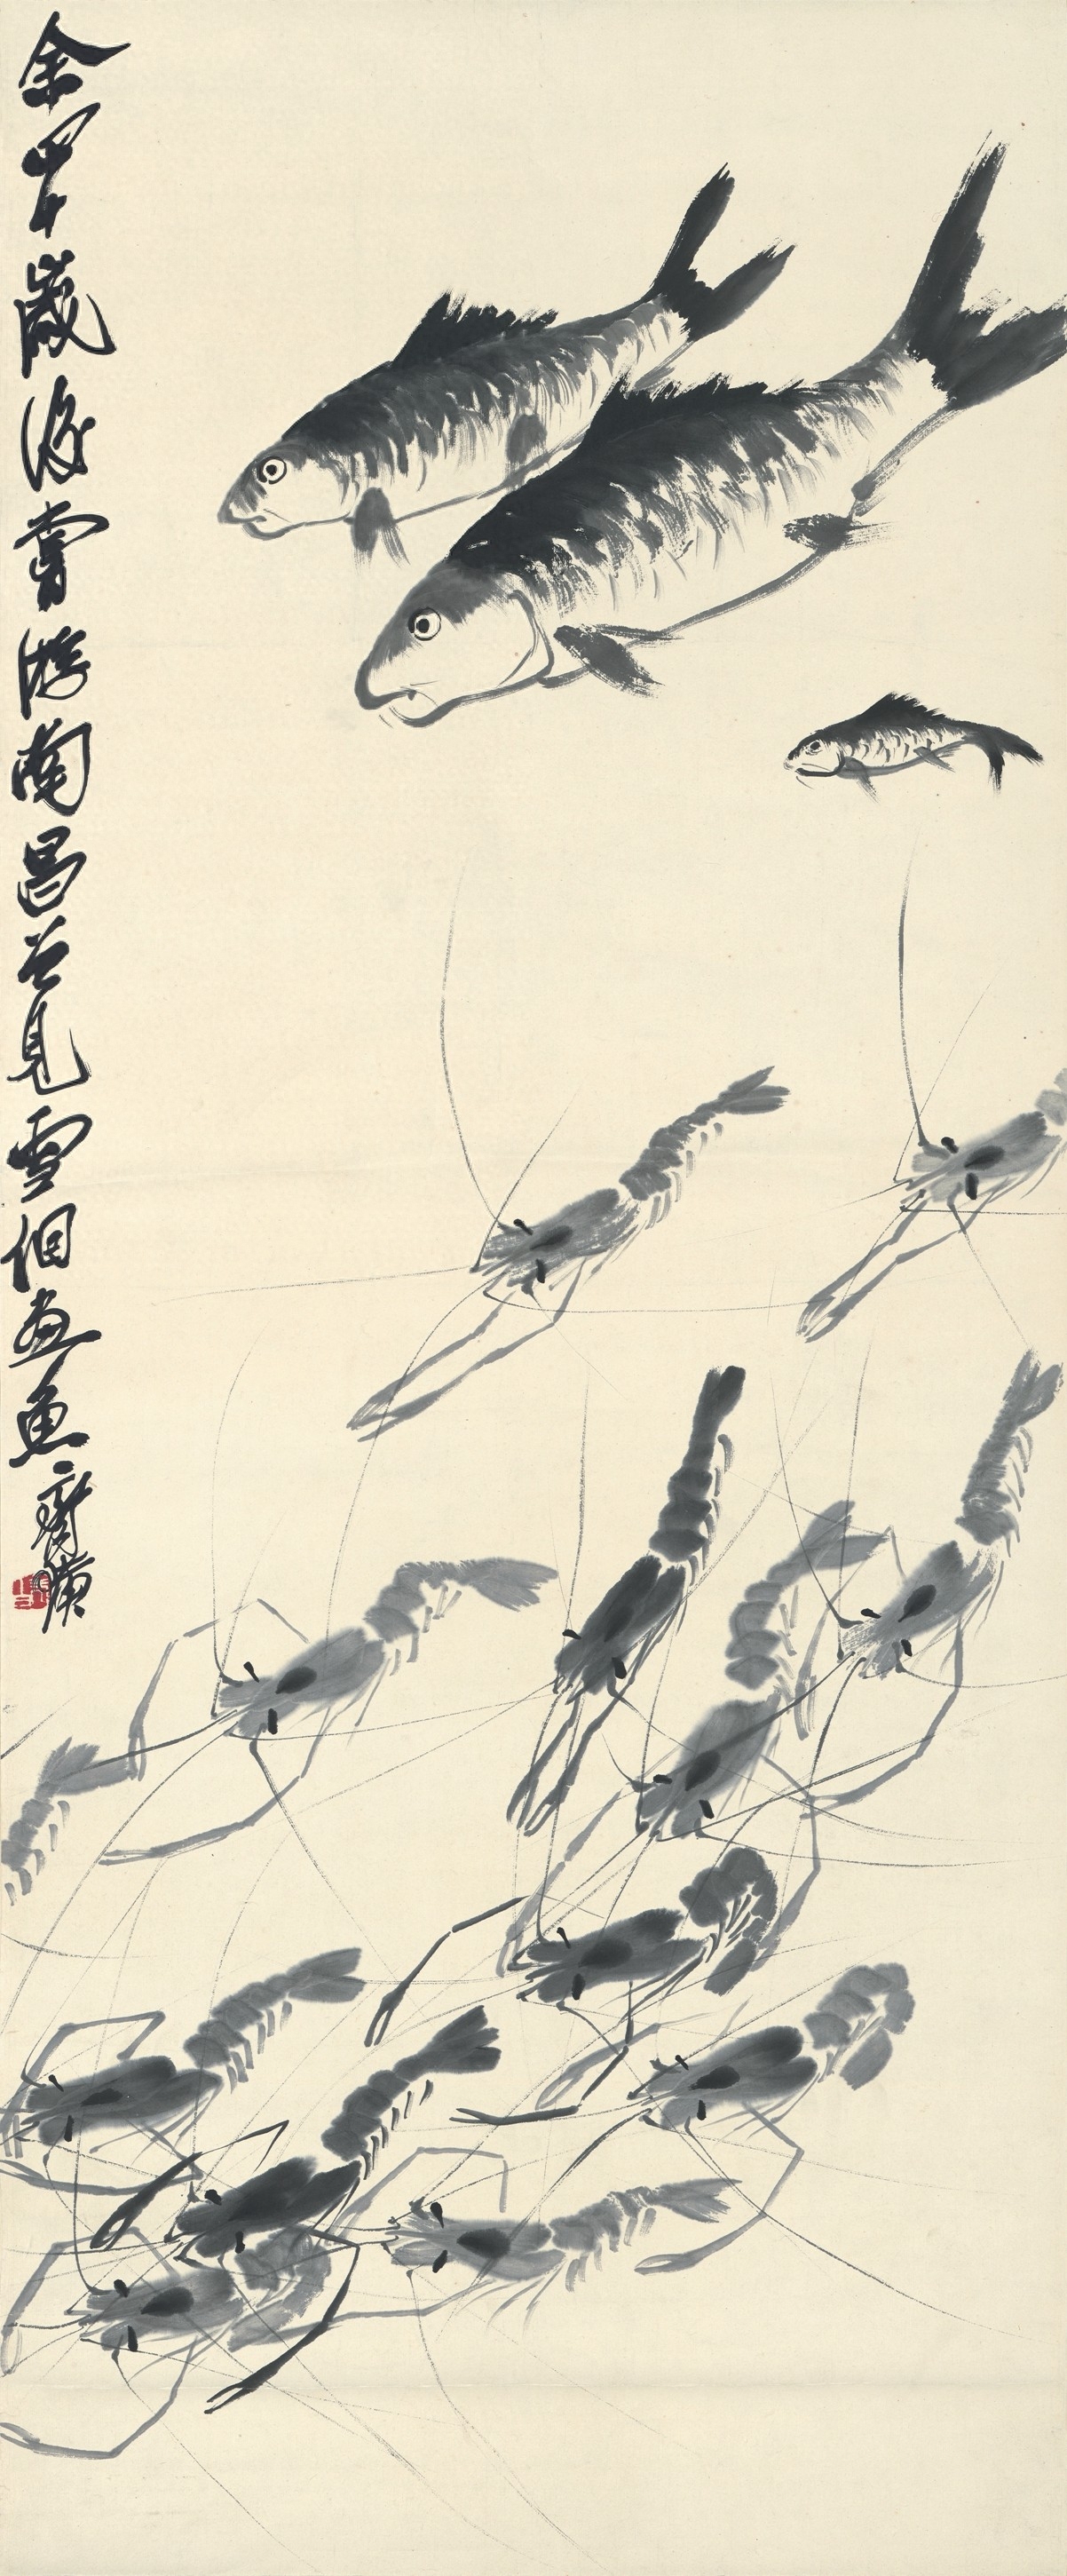 余四十歲後嘗游南昌曾見雪個畫魚齊璜